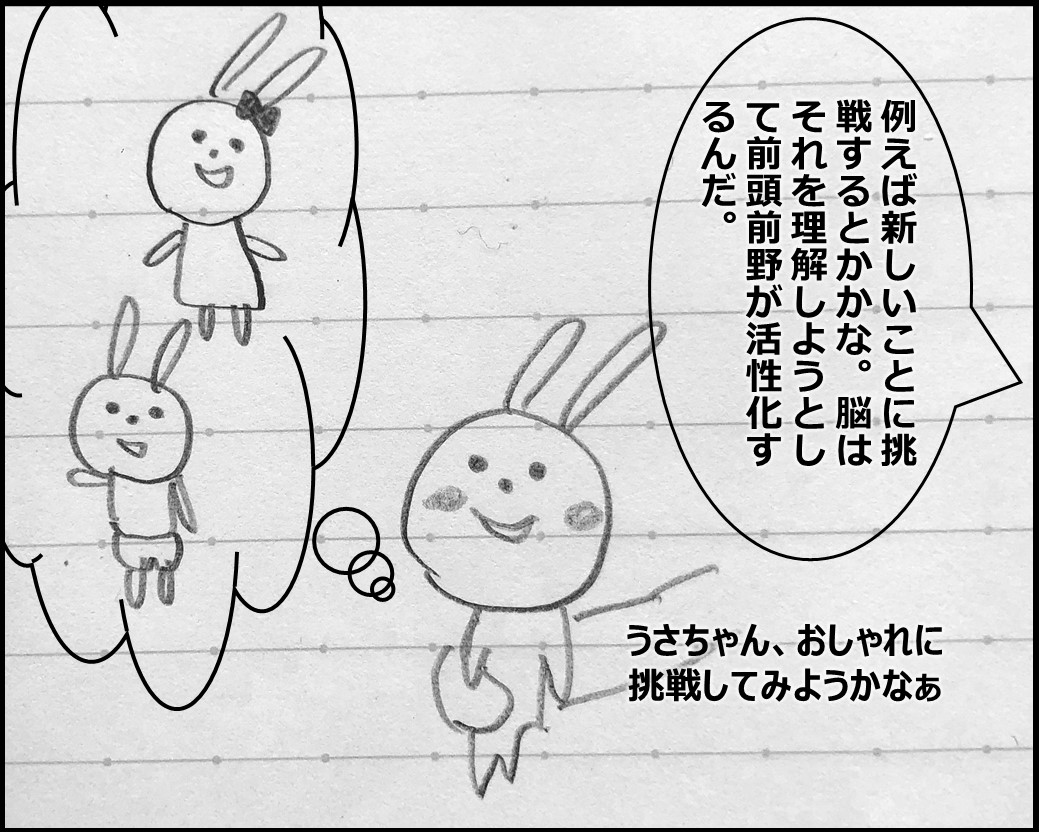 例えば新しいことに挑
戦するとかかな。脳は
それを理解しようとし
て前頭前野が活性化す
るんだ。
うさちゃん、おしゃれに
挑戦してみようかなぁ